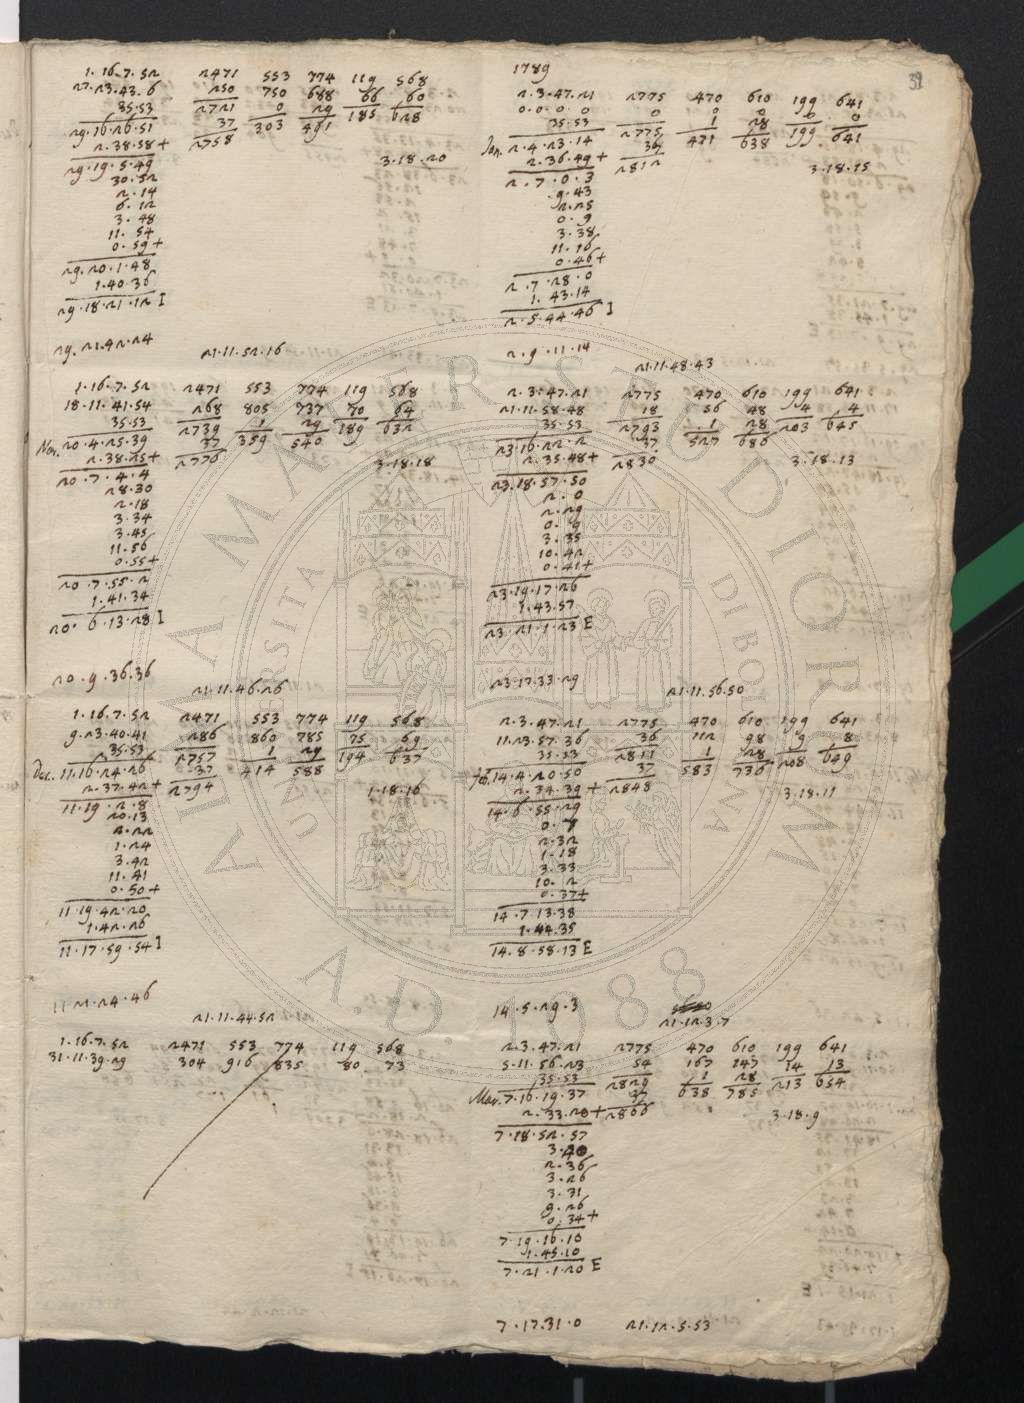 39
1.16.7.52 2471 553 774 119 568
27.23.43.6 250 750 688 66 60
35.53 2721 0 29 185 628
29.16.26.51 37 303 491
2.38.58+ 2758
29.19.5.49 3.18.20
30.52
2.14
6.12
3.48
11.54
0.59+
29.20.1.48
1.40.36
29.18.21.12 I
29.21.42.24 21.11.52.16
1.16.7.52 2471 553 774 119 568
18.11.41.54 268 805 737 70 64
35.53 2739 1 29 189 632
Nov. 20.4.25.39 37 359 540
2.38.25+ 2776 3.18.18
20.7.4.4
28.30
2.18
3.34
3.45
11.56
0.55+
20.7.55.2
1.41.34
20.6.13.28 I
20.9.36.36 21.11.46.26
1.16.7.52 2471 553 774 119 568
9.23.40.41 286 860 785 75 69
35.53 2757 1 29 194 637
Dec. 11.16.24.26 37 414 588
2.37.42+ 2794 3.18.16
11.19.2.8
20.13
2.22
1.24
3.42
11.41
0.50+
11.19.42.20
1.42.26
11.17.59.54 I
11.21.24.46 21.11.44.52
1.16.7.52 2471 553 774 119 568
31.11.39.29 304 916 835 80 73
1789
2.3.47.21 2775 470 610 199 641
0.0.0.0 0 0 0 0 0
35.53 2775 1 28 199 641
Jan. 2.4.23.14 37 471 638
2.36.49+ 2812 3.18.15
2.7.0.3
9.43
2.25
0.9
3.38
11.16
0.46+
2.7.28.0
1.43.14
2.5.44.46 I
2.9.11.14 21.11.48.43
2.3.47.21 2775 470 610 199 641
21.11.58.48 18 56 48 4 4
35.53 2793 1 28 203 645
23.16.22.2 37 527 686
2.35.48+ 2830 3.18.13
23.18.57.50
2.0
2.29
0.9
3.35
10.42
0.41+
23.19.17.26
1.43.57
23.21.1.23 E
23.17.33.29 21.11.56.50
2.3.47.21 2775 470 610 199 641
11.23.57.36 36 112 98 9 8
35.53 2811 1 28 208 649
Feb. 14.4.20.50 37 583 736
2.34.39+ 2848 3.18.11
14.6.55.29
0.7
2.32
1.18
3.33
10.2
0.37+
14.7.13.38
1.44.35
14.8.58.13 E
14.5.29.3
21.12.3.7
2.3.47.21 2775 470 610 199 641
5.11.56.23 54 167 147 14 13
35.53 2829 1 28 213 654
Mar. 7.16.19.37 37 638 785
2.33.20+ 2866 3.18.9
7.18.52.57
2.36
3.26
3.31
9.26
0.34+
7.19.16.10
1.45.10
7.21.1.20 E
7.17.31.0 21.12.5.53
ALMA MATER STUDIORUM
A.D. 1088